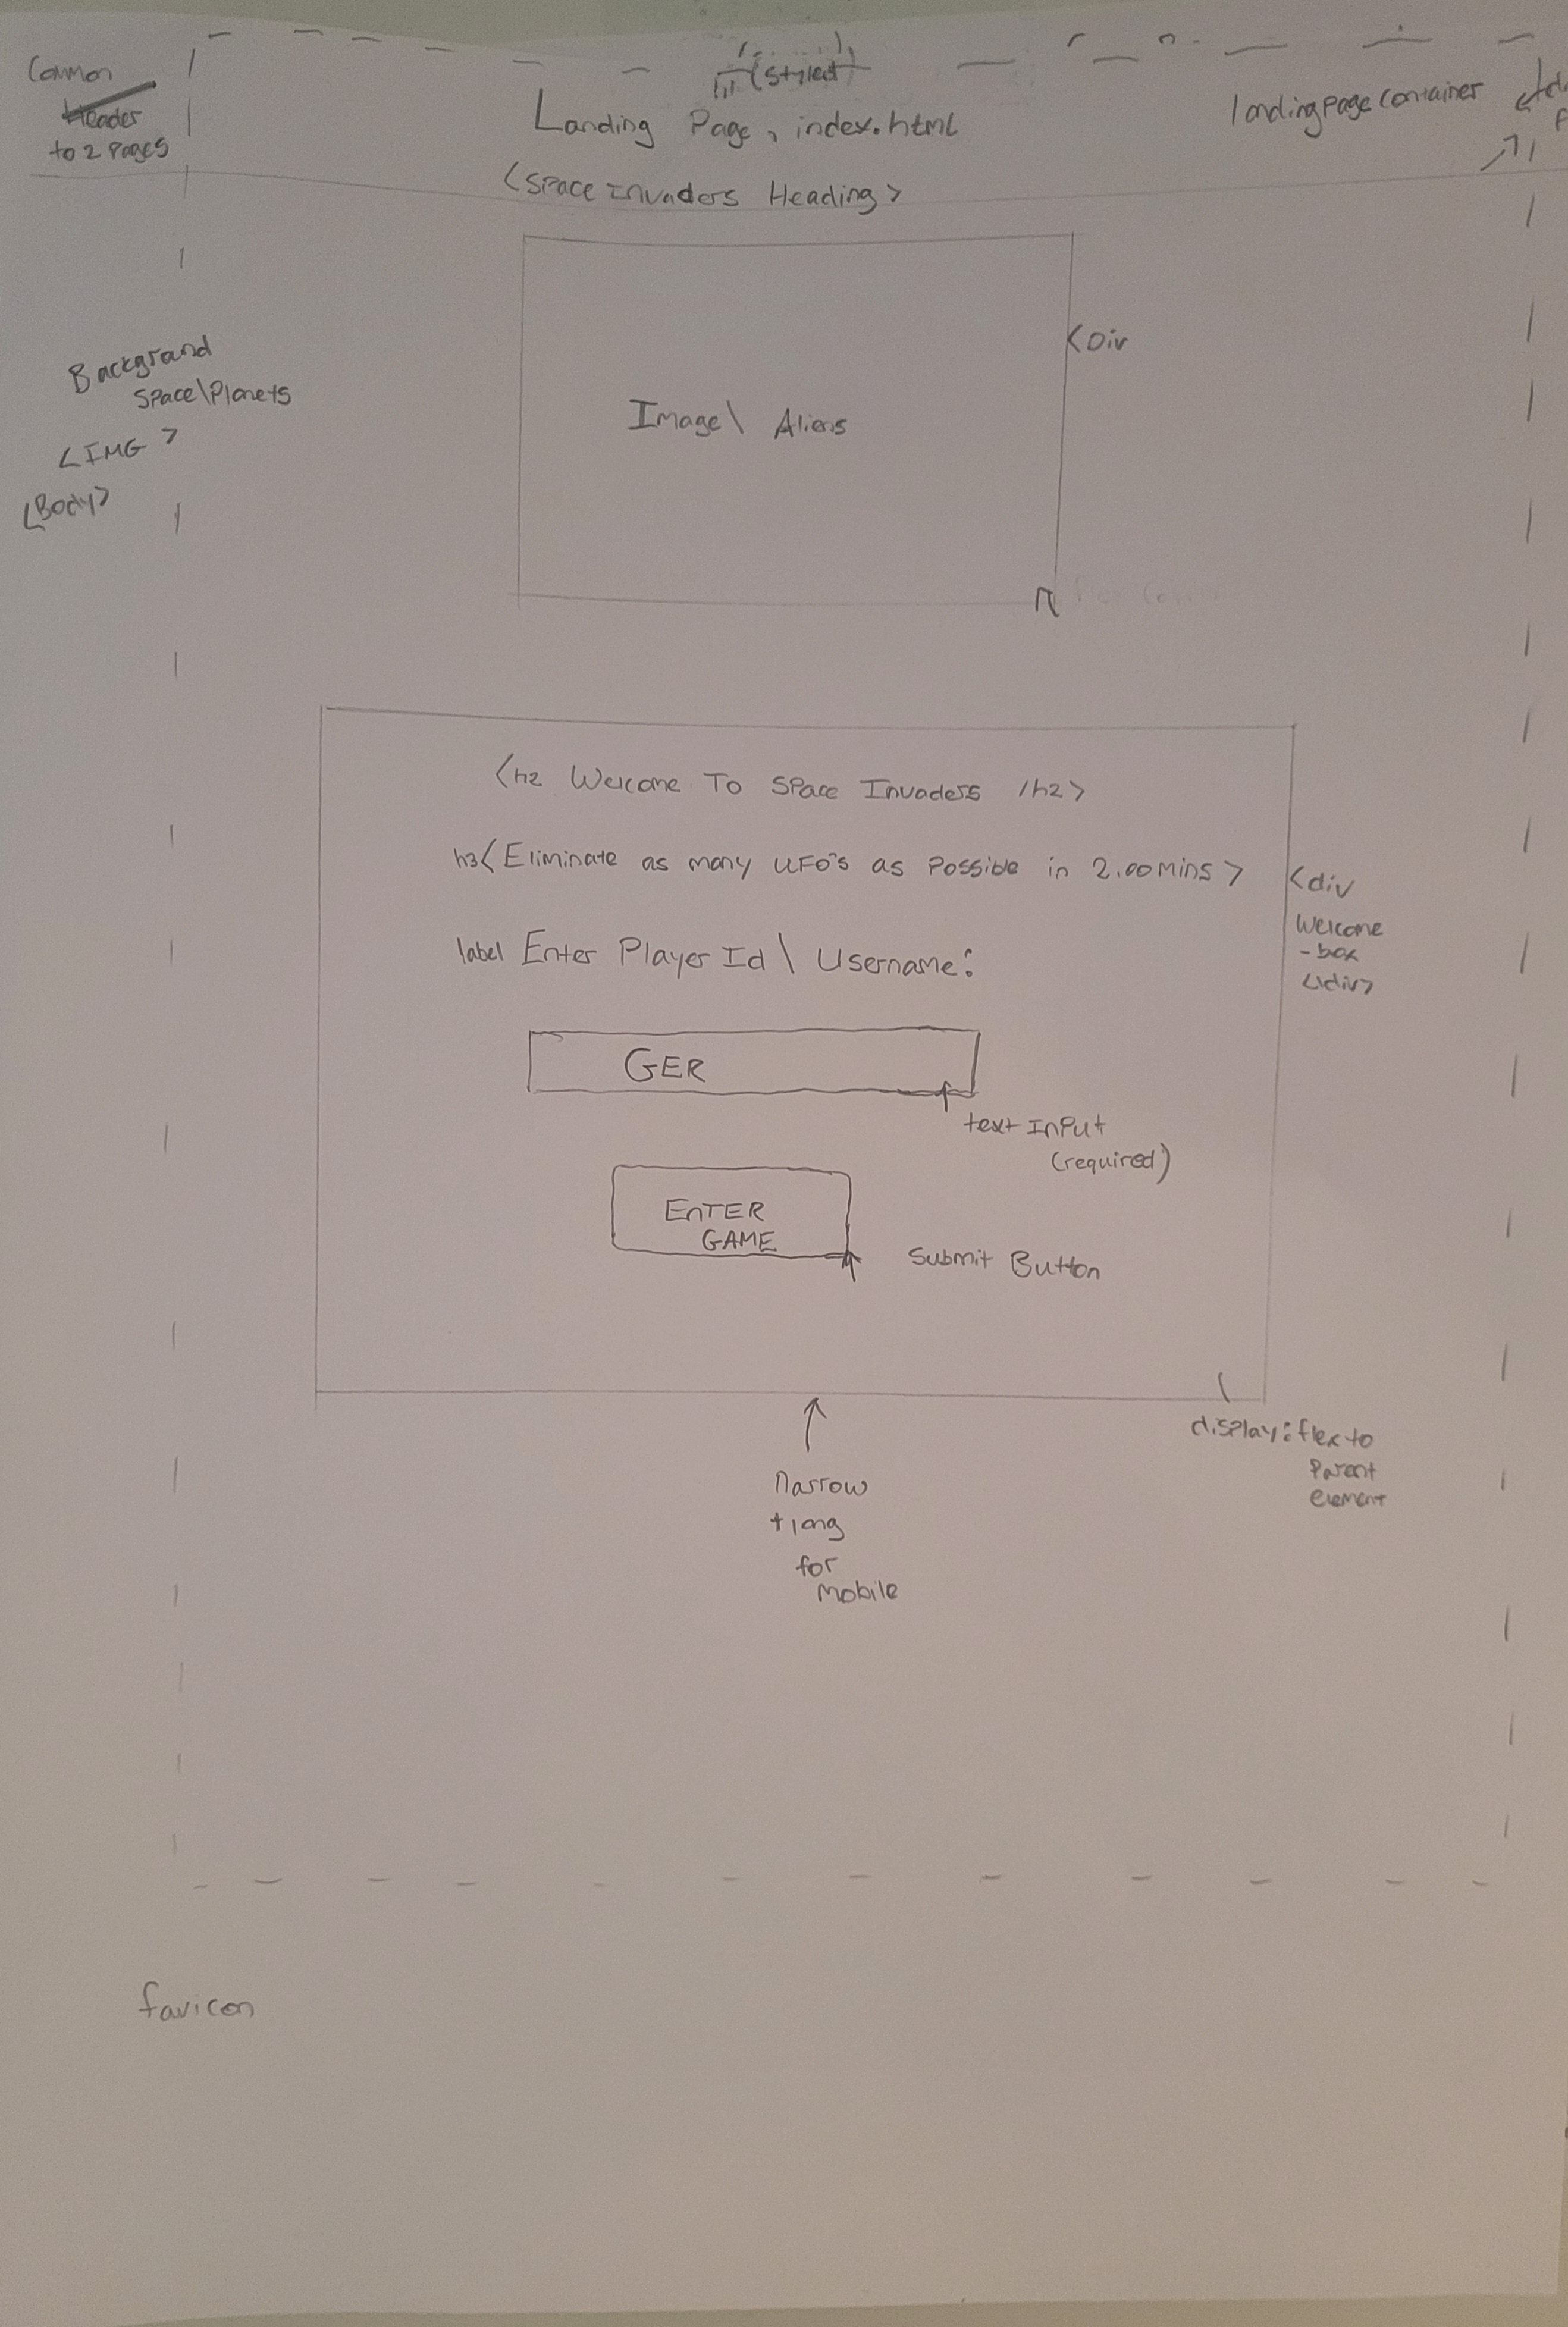 Common
Header
to 2 Pages
(styled)
Landing Page, index.html
landingpage container
<Space Invaders Heading>
<Div
Background
Space\Planets
<IMG>
<Body>
Image\ Aliens
<h2 Welcome To Space Invaders /h2>
h3<Eliminate as many UFO's as Possible in 2.00Mins>
<div
Welcome
-box
<\div>
label Enter Player Id \ Username:
GER
text InPut
(required)
EnTER
GAME
Submit Button
display:flex to
Parent
element
narrow
+ long
for
mobile
favicon